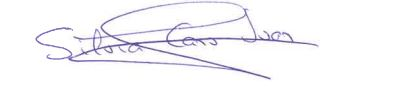 Silvia Caro Juan